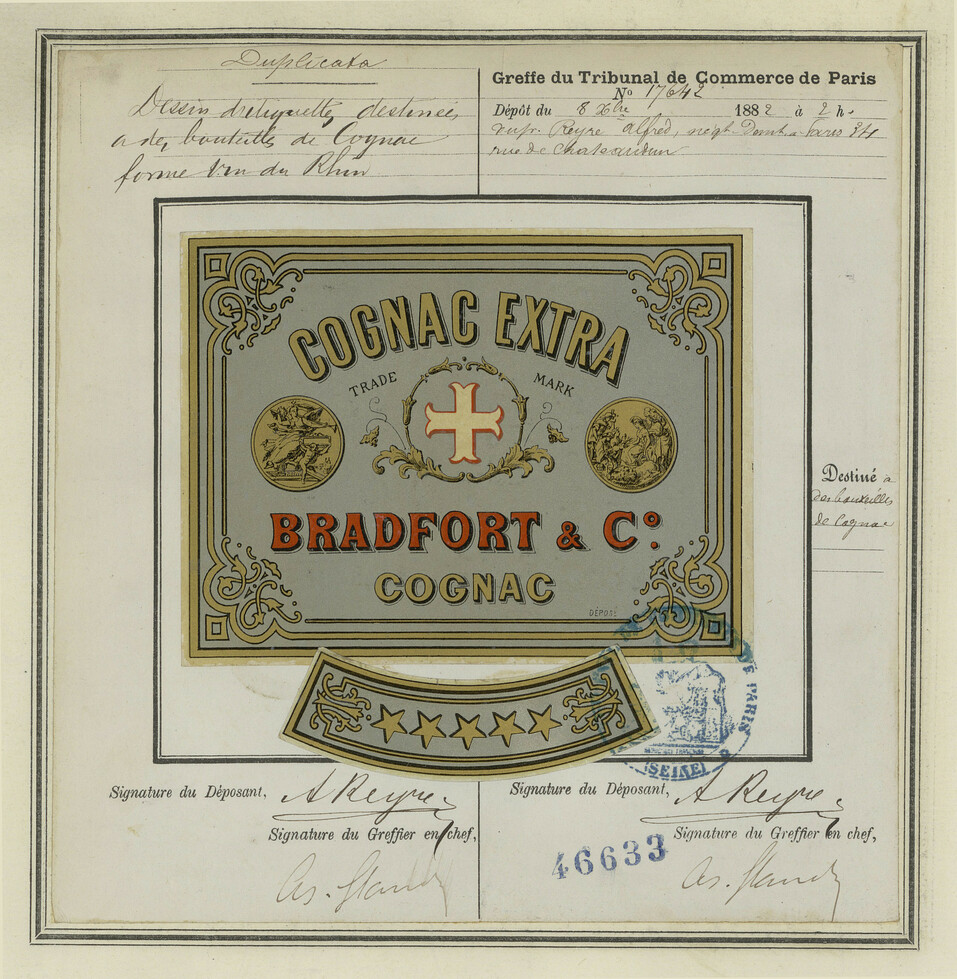 Duplicata
Dessin d'etiquette, destinées
a des bouteilles de Cognac
forme Vin du Rhin
Greffe du Tribunal de Commerce de Paris
No 17642
Dépôt du 8 Xbre 1882 à 2 h.
Reyre Alfred, négt. Demt. a Paris 24
rue de Chateaudun
COGNAC EXTRA
TRADE MARK
BRADFORT & Co.
COGNAC
DÉPOSÉ
Destiné a
des bouteilles
de Cognac
DE PARIS
(SEINE)
Signature du Déposant, A Reyre
Signature du Greffier en chef,
Signature du Déposant, A Reyre
Signature du Greffier en chef,
46633